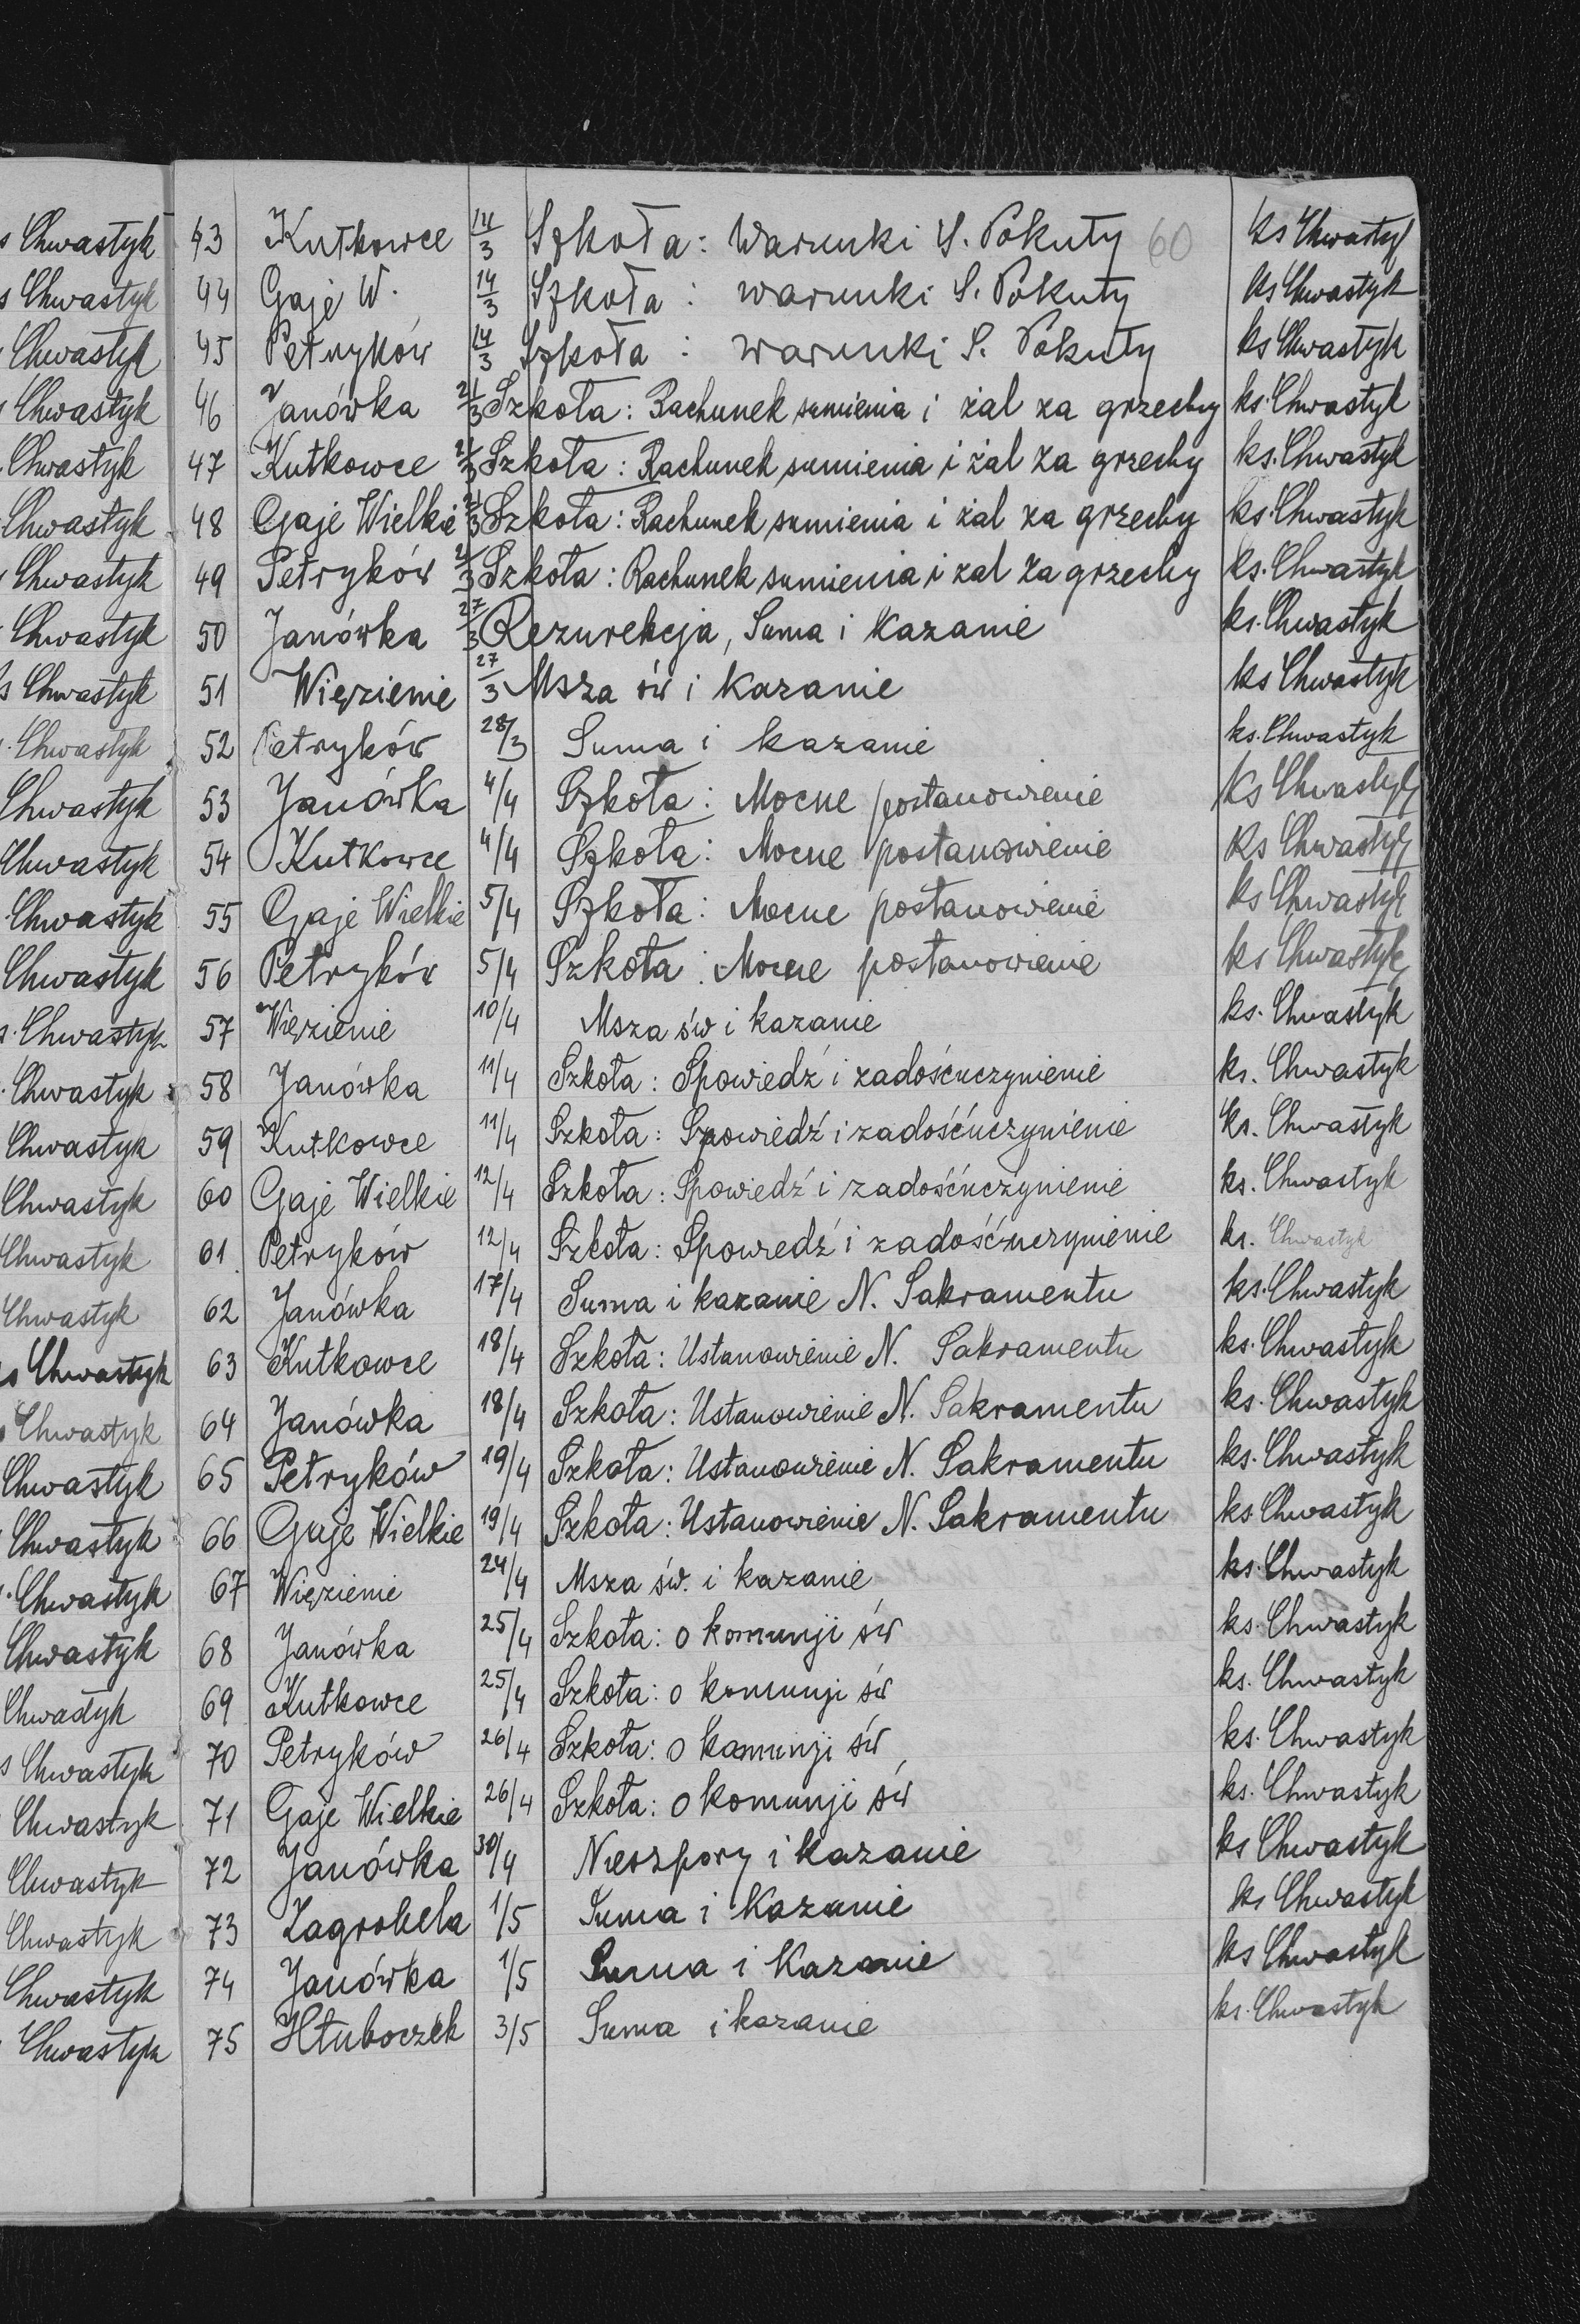 s Chwastyk 43 Kutkowce 14/3 Szkoła: Warunki S. Pokuty 60 ks Chwastyk
s Chwastyk 44 Gaje W. 14/3 Szkoła: warunki S. Pokuty ks Chwastyk
Chwastyk 45 Petryków 14/3 Szkoła: warunki S. Pokuty ks Chwastyk
Chwastyk 46 Janówka 21/3 Szkoła: Rachunek sumienia i żal za grzechy ks. Chwastyk
Chwastyk 47 Kutkowce 21/3 Szkoła: Rachunek sumienia i żal za grzechy ks. Chwastyk
Chwastyk 48 Gaje Wielkie 21/3 Szkoła: Rachunek sumienia i żal za grzechy ks. Chwastyk
Chwastyk 49 Petryków 21/3 Szkoła: Rachunek sumienia i żal za grzechy ks. Chwastyk
Chwastyk 50 Janówka 27/3 Rezurekcja, Suma i kazanie ks. Chwastyk
s Chwastyk 51 Więzienie 27/3 Msza św i kazanie ks Chwastyk
Chwastyk 52 Petryków 28/3 Suma i kazanie ks. Chwastyk
Chwastyk 53 Janówka 4/4 Szkoła: Mocne postanowienie ks Chwastyk
Chwastyk 54 Kutkowce 4/4 Szkoła: Mocne postanowienie ks Chwastyk
Chwastyk 55 Gaje Wielkie 5/4 Szkoła: Mocne postanowienie ks Chwastyk
Chwastyk 56 Petryków 5/4 Szkoła: Mocne postanowienie ks Chwastyk
s. Chwastyk 57 Więzienie 10/4 Msza św i kazanie ks. Chwastyk
Chwastyk 58 Janówka 11/4 Szkoła: Spowiedź i zadośćuczynienie ks. Chwastyk
Chwastyk 59 Kutkowce 11/4 Szkoła: Spowiedź i zadośćuczynienie ks. Chwastyk
Chwastyk 60 Gaje Wielkie 12/4 Szkoła: Spowiedź i zadośćuczynienie ks. Chwastyk
Chwastyk 61 Petryków 12/4 Szkoła: Spowiedź i zadośćuczynienie ks. Chwastyk
Chwastyk 62 Janówka 17/4 Suma i kazanie N. Sakramentu ks. Chwastyk
s Chwastyk 63 Kutkowce 18/4 Szkoła: Ustanowienie N. Sakramentu ks. Chwastyk
Chwastyk 64 Janówka 18/4 Szkoła: Ustanowienie N. Sakramentu ks. Chwastyk
Chwastyk 65 Petryków 19/4 Szkoła: Ustanowienie N. Sakramentu ks. Chwastyk
Chwastyk 66 Gaje Wielkie 19/4 Szkoła: Ustanowienie N. Sakramentu ks Chwastyk
Chwastyk 67 Więzienie 24/4 Msza św. i kazanie ks. Chwastyk
Chwastyk 68 Janówka 25/4 Szkoła: o komunji św ks. Chwastyk
Chwastyk 69 Kutkowce 25/4 Szkoła: o komunji św ks. Chwastyk
s Chwastyk 70 Petryków 26/4 Szkoła: o komunji św ks. Chwastyk
Chwastyk 71 Gaje Wielkie 26/4 Szkoła: o komunji św ks. Chwastyk
Chwastyk 72 Janówka 30/4 Nieszpory i kazanie ks Chwastyk
Chwastyk 73 Zagrobela 1/5 Suma i kazanie ks Chwastyk
Chwastyk 74 Janówka 1/5 Suma i kazanie ks Chwastyk
Chwastyk 75 Hłuboczek 3/5 Suma i kazanie ks. Chwastyk